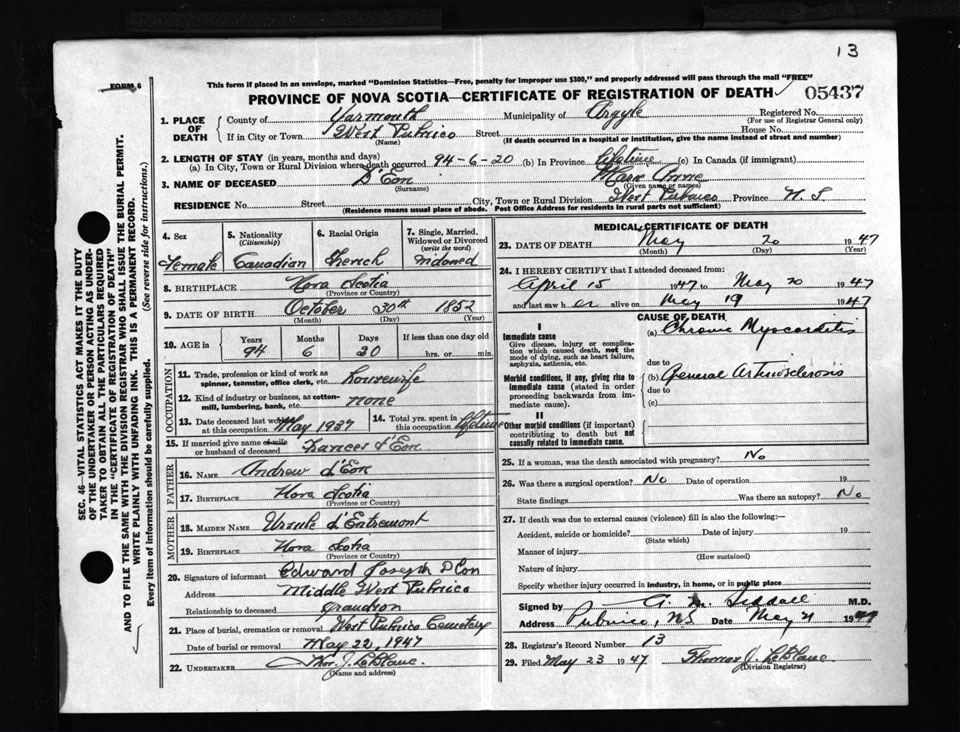 13
FORM 6
This form if placed in an envelope, marked "Dominion Statistics—Free, penalty for improper use $300," and properly addressed will pass through the mail "FREE"
PROVINCE OF NOVA SCOTIA—CERTIFICATE OF REGISTRATION OF DEATH 05437
SEC. 46 VITAL STATISTICS ACT MAKES IT THE DUTY
OF THE UNDERTAKER OR PERSON ACTING AS UNDER-
TAKER TO OBTAIN ALL THE PARTICULARS REQUIRED
IN THE "CERTIFICATE OF REGISTRATION OF DEATH"
AND TO FILE THE SAME WITH THE DIVISION REGISTRAR WHO SHALL ISSUE THE BURIAL PERMIT.
WRITE PLAINLY WITH UNFADING INK. THIS IS A PERMANENT RECORD.
Every item of information should be carefully supplied. (See reverse side for instructions.)
1. PLACE OF DEATH County of Yarmouth Municipality of Argyle Registered No.
(For use of Registrar General only)
If in City or Town West Pubnico Street House No.
(Name) (If death occurred in a hospital or institution, give the name instead of street and number)
2. LENGTH OF STAY (in years, months and days)
(a) In City, Town or Rural Division where death occurred 94-6-20 (b) In Province lifetime (c) In Canada (if immigrant)
3. NAME OF DECEASED D'Eon Marie Anne
(Surname) (Given name or names)
RESIDENCE No. Street City, Town or Rural Division West Pubnico Province N.S
(Residence means usual place of abode. Post Office Address for residents in rural parts not sufficient)
4. Sex 5. Nationality (Citizenship) 6. Racial Origin 7. Single, Married, Widowed or Divorced (write the word)
Female Canadian French Widowed
8. BIRTHPLACE Nova Scotia
(Province or Country)
9. DATE OF BIRTH October 30th 1852
(Month) (Day) (Year)
10. AGE in Years Months Days If less than one day old
94 6 20 hrs. or min.
OCCUPATION
11. Trade, profession or kind of work as
spinner, teamster, office clerk, etc. housewife
12. Kind of industry or business, as cotton-
mill, lumbering, bank, etc. none
13. Date deceased last worked at this occupation May 1937 14. Total yrs. spent in this occupation lifetime
15. If married give name of wife
or husband of deceased Frances d'Eon
FATHER
16. NAME Andrew d'Eon
17. BIRTHPLACE Nova Scotia
(Province or Country)
MOTHER
18. MAIDEN NAME Ursule d'Entremont
19. BIRTHPLACE Nova Scotia
(Province or Country)
20. Signature of informant Edward Joseph D'Eon
Address Middle West Pubnico
Relationship to deceased Grandson
21. Place of burial, cremation or removal West Pubnico Cemetery
Date of burial or removal May 22, 1947
22. UNDERTAKER Thos. J. LeBlanc.
(Name and address)
MEDICAL CERTIFICATE OF DEATH
23. DATE OF DEATH May 20 1947
(Month) (Day) (Year)
24. I HEREBY CERTIFY that I attended deceased from:
April 15 1947 to May 20 1947
and last saw her alive on May 19 1947
CAUSE OF DEATH
I
Immediate cause
Give disease, injury or complica-
tion which caused death, not the
mode of dying, such as heart failure,
asphyxia, asthenia, etc.
(a) Chronic Myocarditis
due to
Morbid conditions, if any, giving rise to
immediate cause (stated in order
proceeding backwards from im-
mediate cause).
(b) General Arteriosclerosis
due to
(c)
II
Other morbid conditions (if important)
contributing to death but not
causally related to immediate cause.
25. If a woman, was the death associated with pregnancy? No
26. Was there a surgical operation? No Date of operation 19
State findings Was there an autopsy? No
27. If death was due to external causes (violence) fill in also the following:—
Accident, suicide or homicide? Date of injury 19
(State which)
Manner of injury
(How sustained)
Nature of injury
Specify whether injury occurred in industry, in home, or in public place
Signed by M.D.
Address Pubnico, NS Date May 21 1947
28. Registrar's Record Number 13
29. Filed May 23 1947 Thomas J. LeBlanc
(Division Registrar)